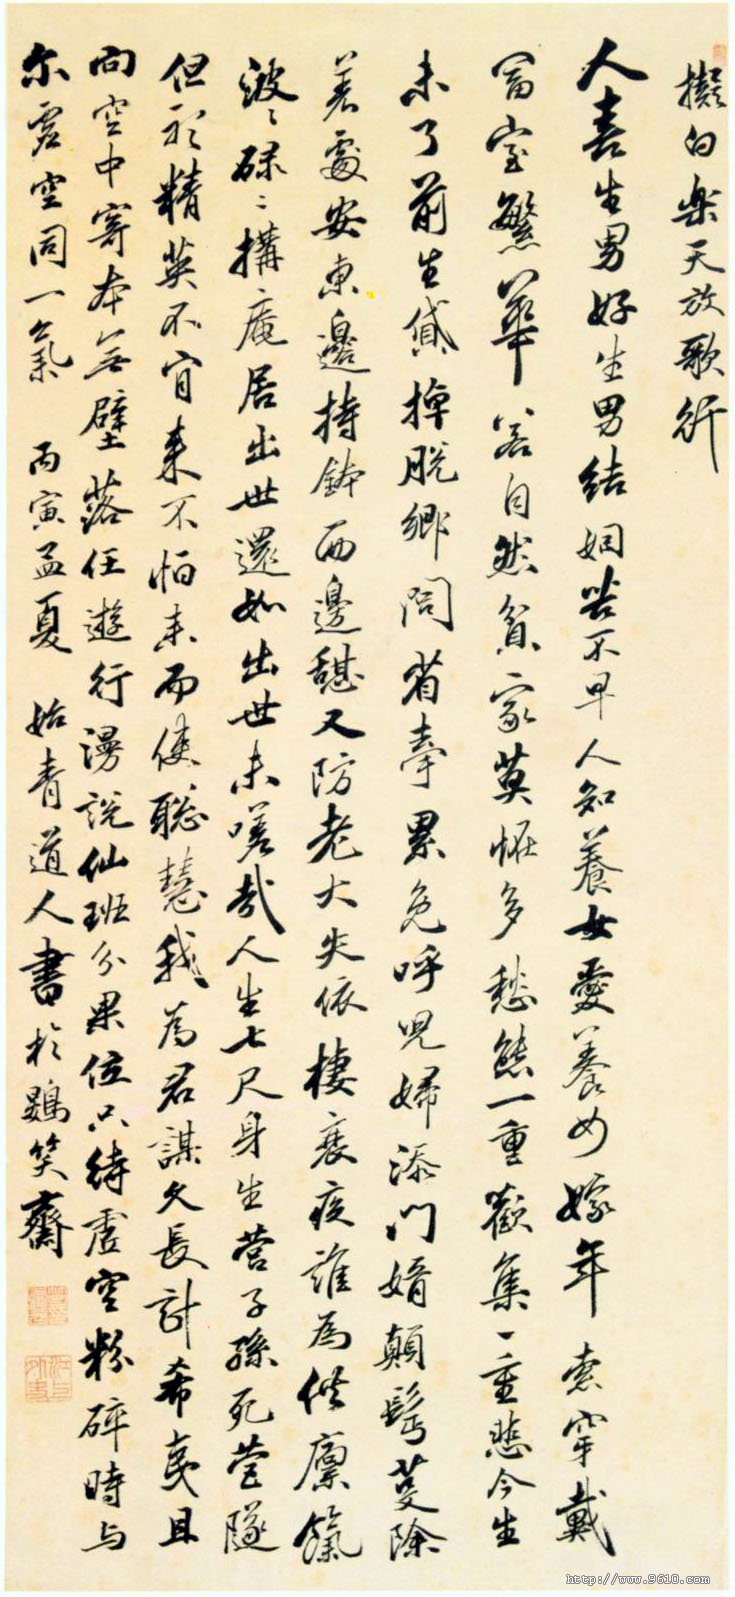 擬白樂天放歌行
人喜生男好生男結姻苦不早人知養女愛養女嫁年索穿戴
富室繁華若自然貧家莫怪多愁態一重歡集一重悲今生
未了前生貸掉脫鄉問省牽累兒呼兒婦添門婿顛髩蔓除
差處安東邊持鉢西邊趕又防老大失依棲衰疾誰為供廩餼
波〻碌〻構庵居出世還如出世未嗟哉人生七尺身生營子孫死營隧
但砂精英不肯來不怕未而使聰慧我為君謀久長計希夷且
向空中寄本無壁落任遊行漫說仙班分果位只待虛空粉碎時与
尔虛空同一氣 丙寅孟夏 始青道人書於鷃笑齋
http://www.9610.com